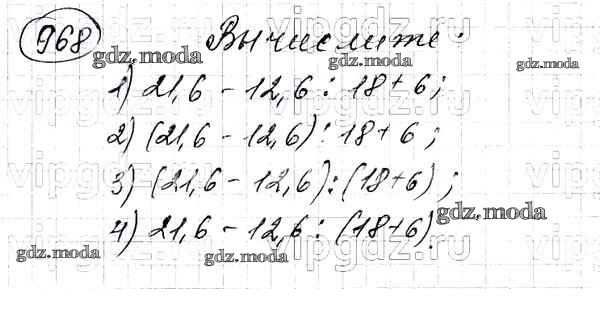 968 Вычислите:
1) 21,6 - 12,6 : 18 + 6;
2) (21,6 - 12,6) : 18 + 6;
3) (21,6 - 12,6) : (18 + 6);
4) 21,6 - 12,6 : (18 + 6).
gdz.moda
gdz.moda
gdz.moda
gdz.moda
gdz.moda
gdz.moda
gdz.moda
vipgdz.net
vipgdz.net
vipgdz.net
vipgdz.net